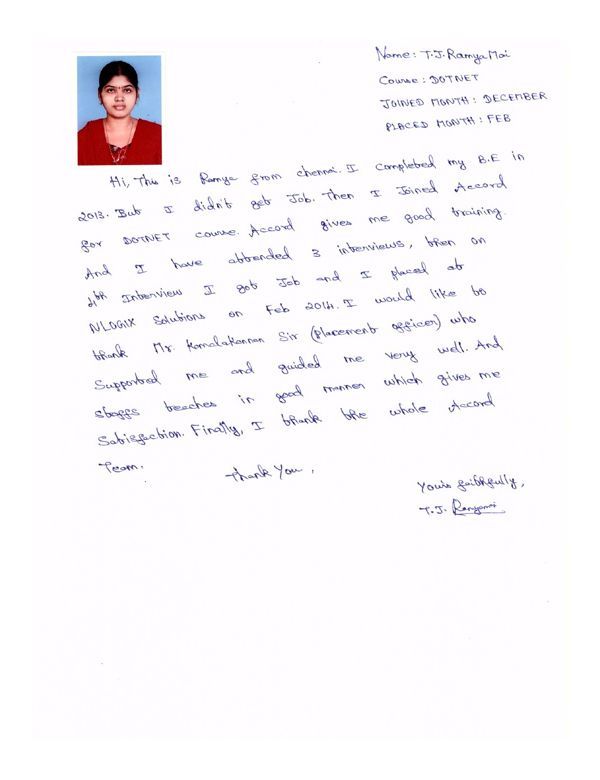 Name: T.J. Ramya Moi
Course: DOTNET
JOINED MONTH: DECEMBER
PLACED MONTH: FEB
Hi, This is Ramya from chennai. I completed my B.E in
2013. But I didn't get Job. Then I Joined Accord
for DOTNET course. Accord gives me good training.
And I have attended 3 interviews, then on
4th Interview I got Job and I placed at
NLOGIX Solutions on Feb 2014. I would like to
thank Mr. Kamalakannan Sir (placement officer) who
Supported me and guided me very well. And
staffs teaches in good manner which gives me
Satisfaction. Finally, I thank the whole Accord
Team.
Thank You,
Yours faithfully,
T.J. Ramyamoi